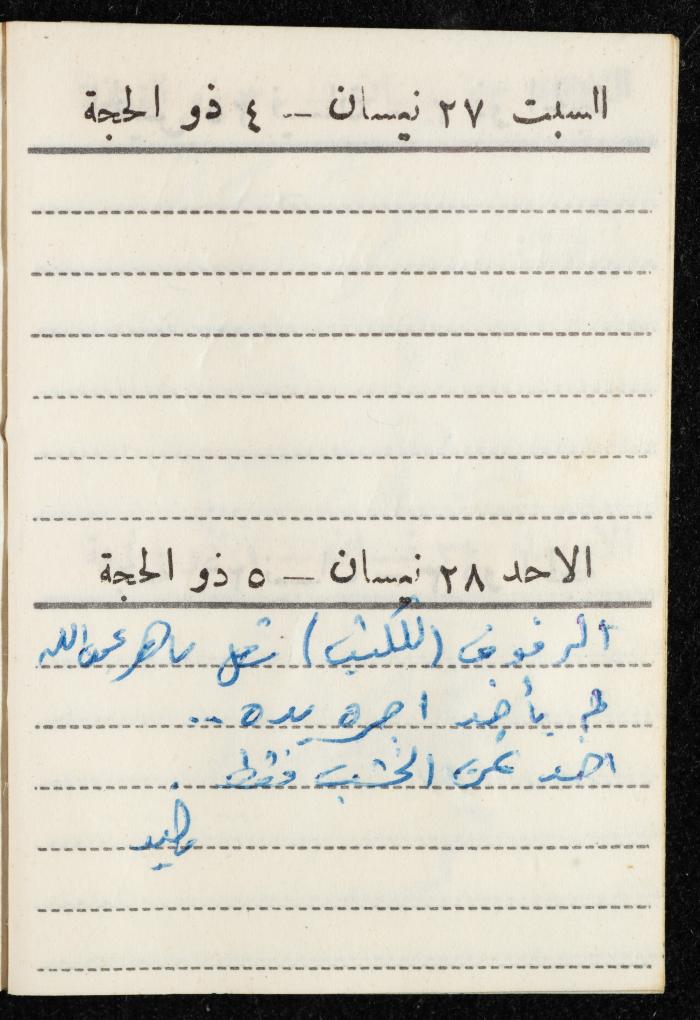 السبت ٢٧ نيسان — ٤ ذو الحجة
الاحد ٢٨ نيسان — ٥ ذو الحجة
الرفوف (للكتب) شغل ماهر عبدالله
لم يأخذ اجره يده ..
اخذ ثمن الخشب فقط .